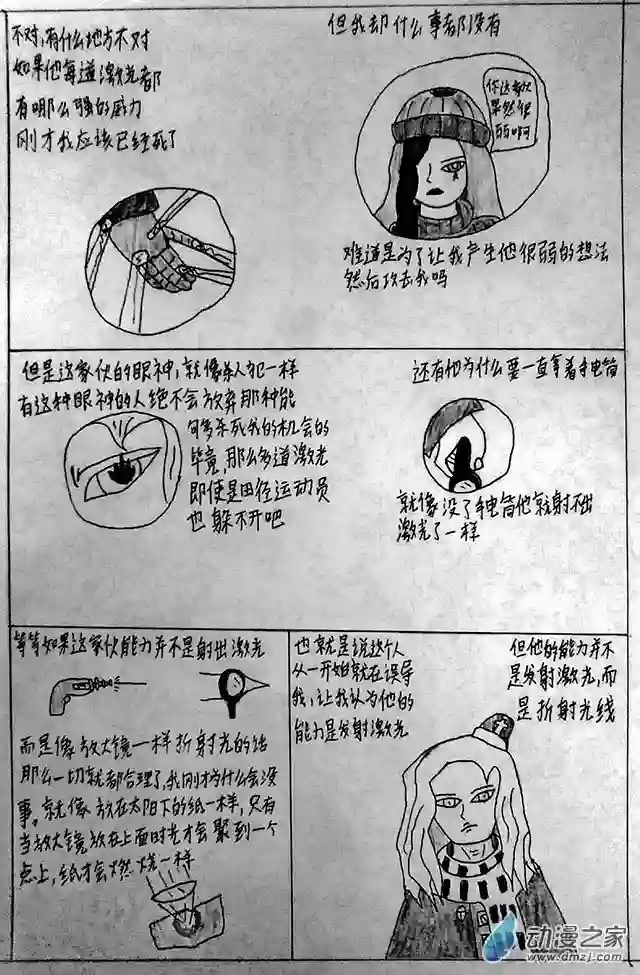 不对,有什么地方不对
如果他每道激光都
有哪么强的威力
刚才我应该已经死了
但我却什么事都没有
你这家伙
果然很
弱啊
难道是为了让我产生他很弱的想法
然后攻击我吗
但是这家伙的眼神,就像杀人犯一样
有这种眼神的人绝不会放弃那种能
够多杀死我的机会的
毕竟,那么多道激光
即使是田径运动员
也躲不开吧
还有他为什么要一直拿着手电筒
就像没了手电筒他就射不出
激光了一样
等等如果这家伙能力并不是射出激光
而是像放大镜一样折射光的话
那么一切就都合理了,我刚才为什么会没
事。就像放在太阳下的纸一样,只有
当放大镜放在上面时光才会聚到一个
点上,纸才会燃烧一样
也就是说这个人
从一开始就在误导
我,让我认为他的
能力是发射激光
但他的能力并不
是发射激光,而
是折射光线
动漫之家
www.dmzj.com